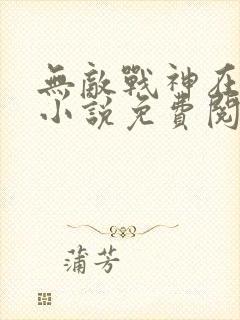 無敵戰神在
小說免費閱
蒲芳